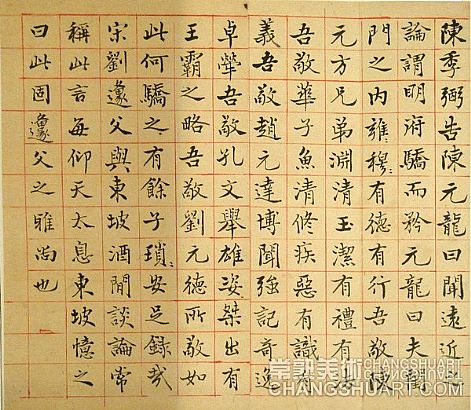 陳季弼告陳元龍曰聞遠近之
論謂明府驕而矜元龍曰夫閨
門之內雍穆〻有德有行吾敬陳
元方兄弟淵清玉潔有禮有法
吾敬華子魚清修疾惡有識有
義吾敬趙元達博聞強記奇逸
卓犖吾敬孔文舉雄姿桀出有
王霸之略吾敬劉元德所敬如
此何驕之有餘子瑣〻安足錄哉
宋劉邍父與東坡酒間談論常
稱此言每仰天太息東坡憶之
曰此固邍父之雅尚也
常熟美術 CHANGSHUART
CHANGSHUART.COM